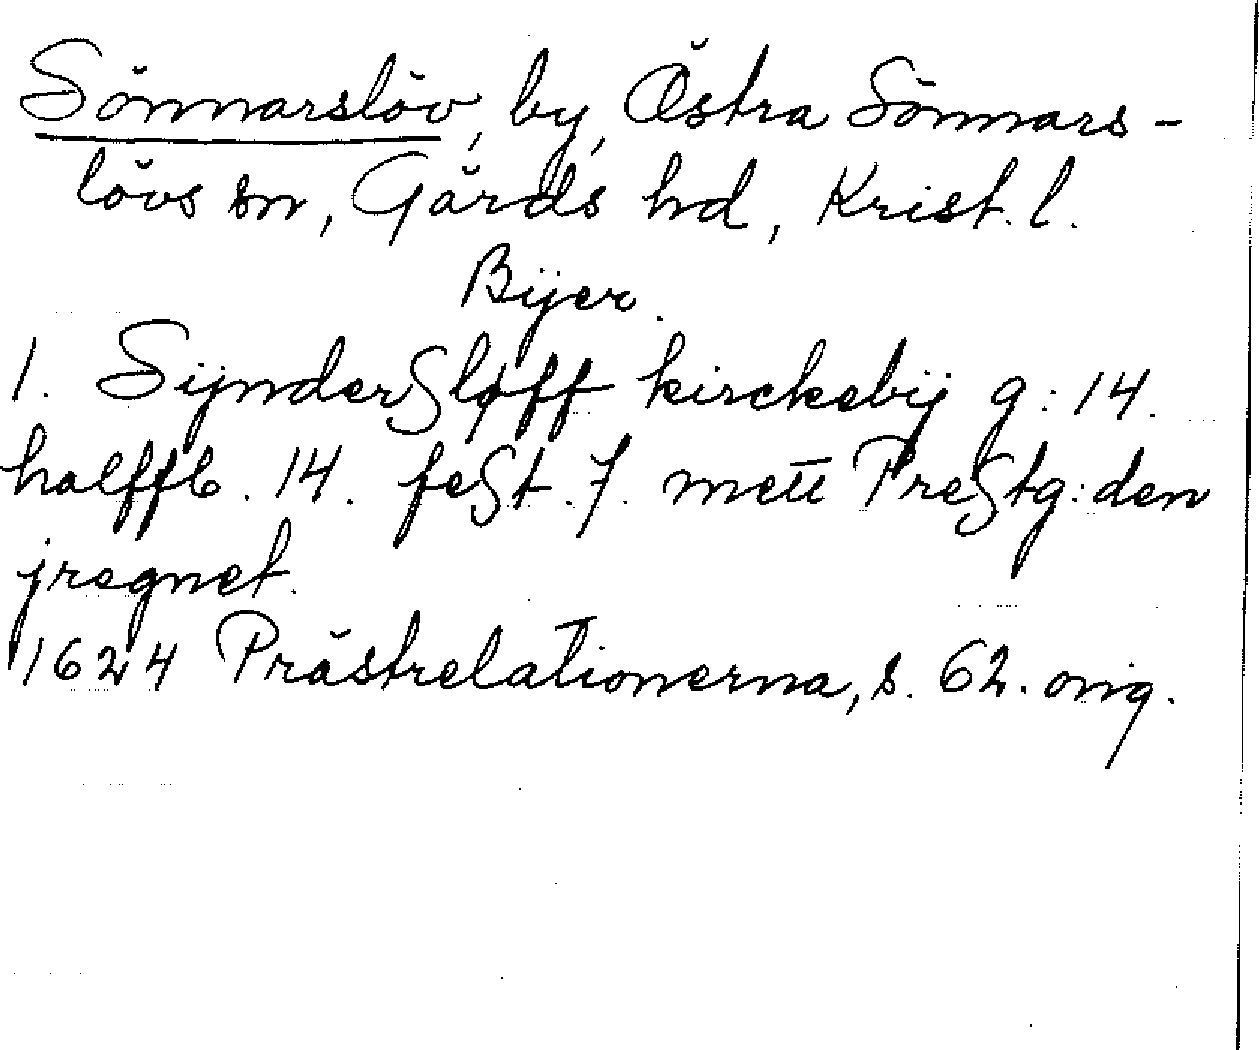 Sönnarslöv, by, Östra Sönnars-
lövs sn, Gärds hd, Krist. l.
Bÿer.
1. Sÿnderſløff kirckebÿ g: 14.
halffb. 14. feſt. 7. mett Preſtg:den
jregnet.
1624 Prästrelationerna, s. 62. orig.